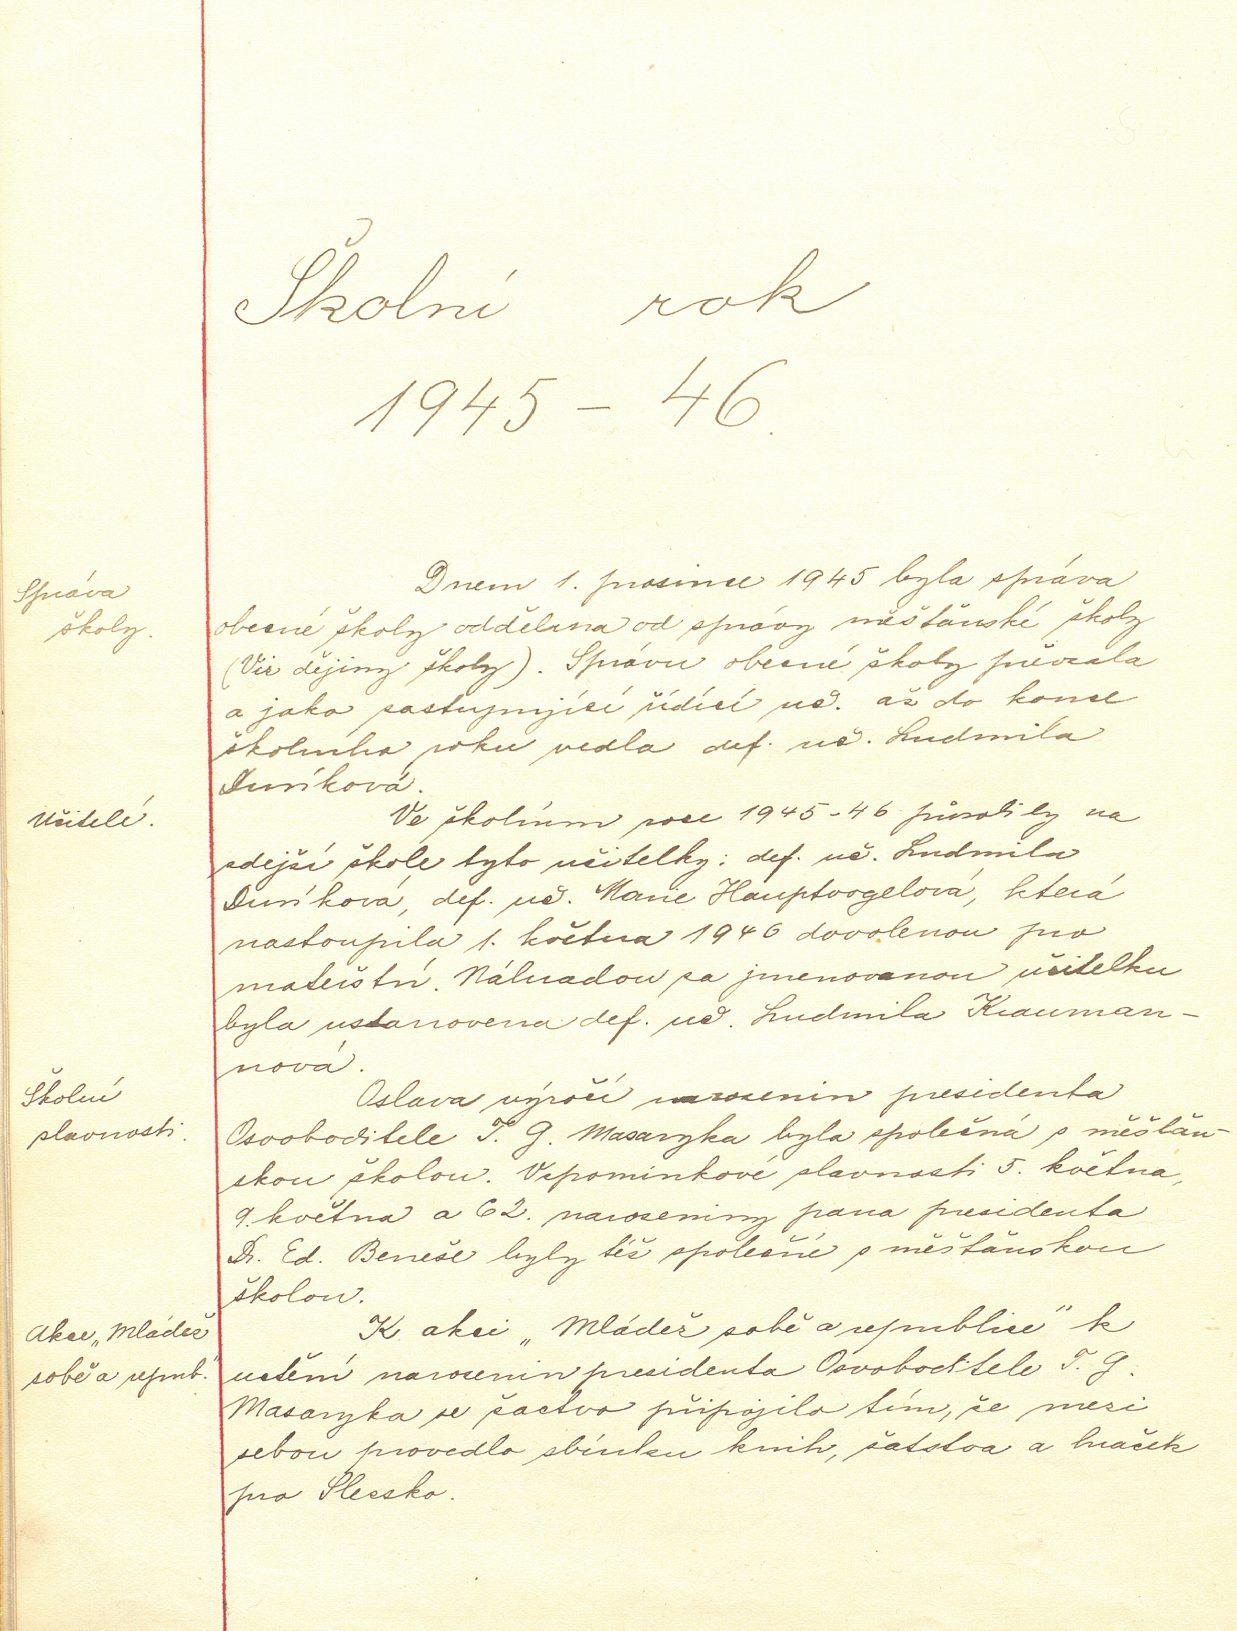 Školní rok
1945 – 46.
Správa
školy.
Dnem 1. prosince 1945 byla správa
obecné školy oddělena od správy měšťanské školy
(Viz dějiny školy). Správu obecné školy převzala
a jako zastupující řídící uč. až do konce
školního roku vedla def. uč. Ludmila
Duníková.
Učitelé.
Ve školním roce 1945-46 působily na
zdejší škole tyto učitelky: def. uč. Ludmila
Duníková, def. uč. Marie Hauptvogelová, která
nastoupila 1. května 1946 dovolenou pro
mateřství. Náhradou za jmenovanou učitelku
byla ustanovena def. uč. Ludmila Krauman-
nová.
Školní
slavnosti.
Oslava výročí narozenin presidenta
Osvoboditele T. G. Masaryka byla společná s měšťan-
skou školou. Vzpomínkové slavnosti 5. května,
9. května a 62. narozeniny pana presidenta
Dr. Ed. Beneše byly též společné s měšťanskou
školou.
Akce „Mládež
sobě a repub.“
K akci „Mládež sobě a republice“ k
uctění narozenin presidenta Osvoboditele T. G.
Masaryka se žactvo připojilo tím, že mezi
sebou provedlo sbírku knih, šatstva a hraček
pro Slezsko.